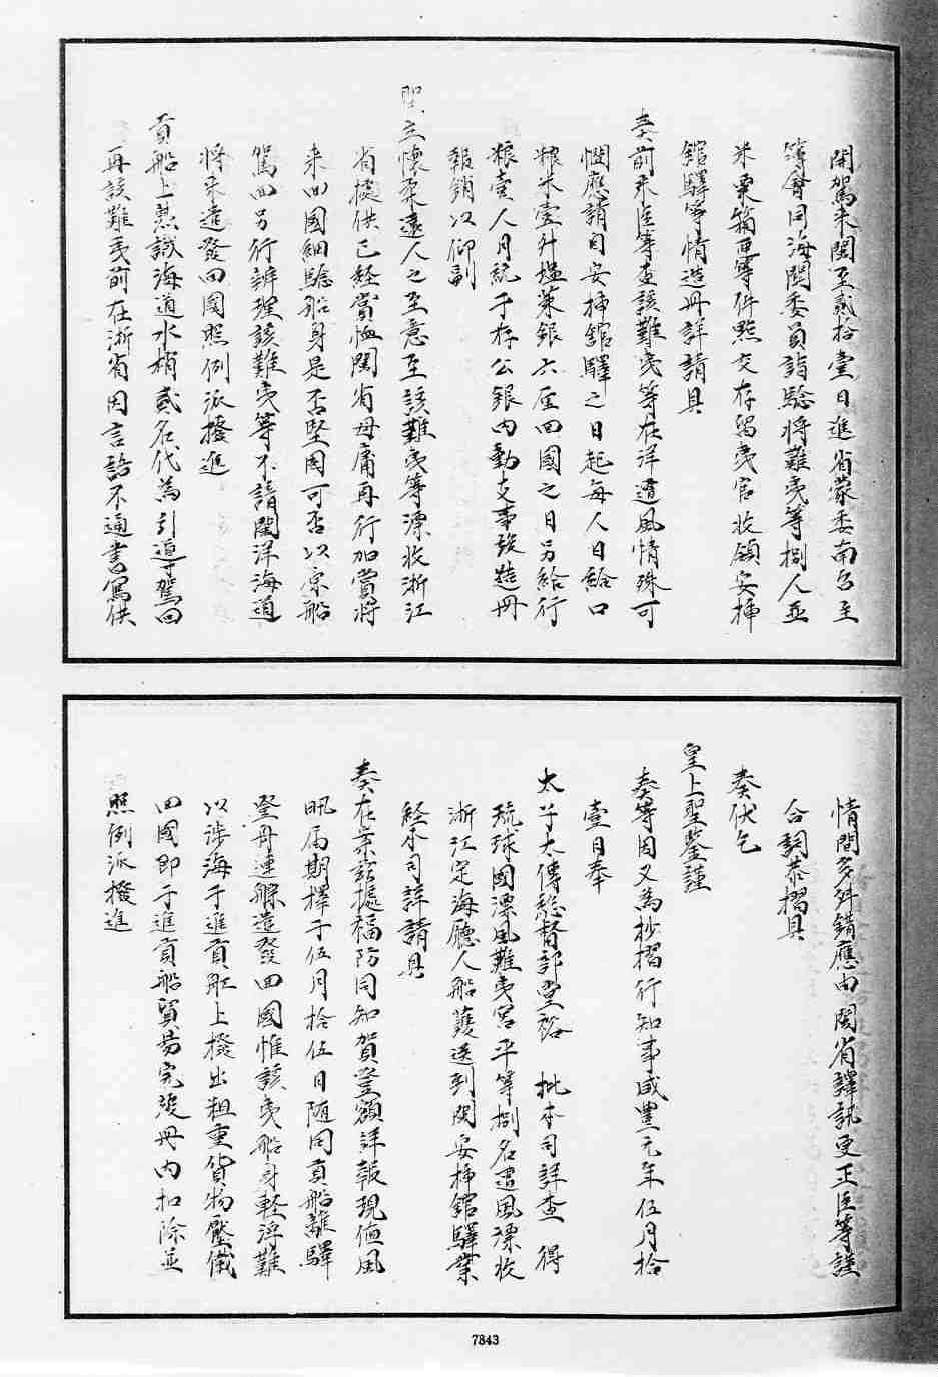 開駕來閩至貳拾壹日進省蒙委南臺至
簿會同海關委員詣驗將難夷等捌人並
米粟箱畢等件點交存留夷官收領安插
館驛等情造册詳請具
奏前來臣等查該難夷等在洋遭風情殊可
憫應請自安插館驛之日起每人日給口
粮米壹升塩菜銀六厘回國之日另給行
粮壹人月統于存公銀内動支事竣造册
報銷以仰副
聖主懷柔遠人之至意至該難夷等漂收浙江
省據供已經賞恤閩省毋庸再行加賞將
來回國細驗船身是否堅固可否以原船
駕回另行辨理該難夷等不諳閩洋海道
將來遣發回國照例派撥進
貢船上熟識海道水梢貳名代為引導駕回
再該難夷前在浙省因言語不通書寫供
情間多舛錯應由閩省譯訊更正臣等謹
合詞恭摺具
奏伏乞
皇上聖鑒謹
奏等因又為抄摺行知事咸豐元年伍月拾
壹日奉
太子太傅総督部堂裕 批本司詳查 得
琉球國漂風難夷宮平等捌名遭風漂收
浙江定海廳人船護送到閩安插館驛業
経本司詳請具
奏在案兹據福防同知賀登額詳報現值風
汛届期擇于伍月拾伍日随同貢船離驛
登舟連䑸遣發回國惟該夷船身軽浮難
以渉海于進貢船上撥出粗重貨物壓儎
回國即于進貢船貿易完竣册内扣除並
照例派撥進
7843